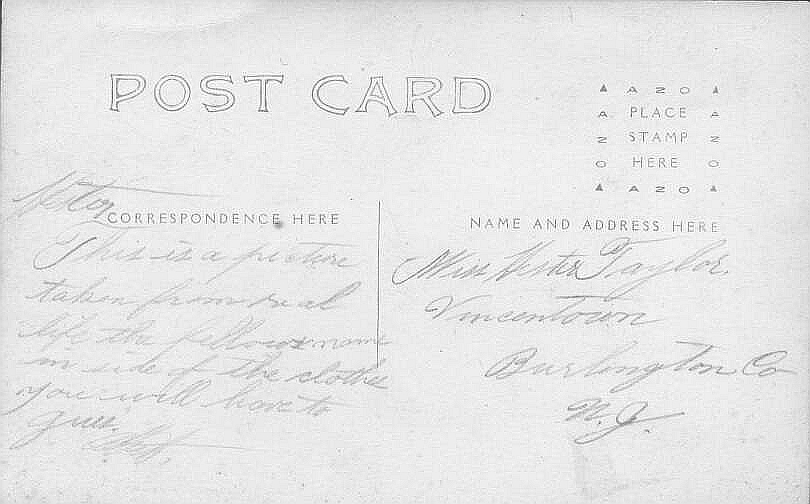 POST CARD
▲ A Z O ▲
A PLACE A
Z STAMP Z
O HERE O
▲ A Z O ▲
CORRESPONDENCE HERE
This is a picture
taken from real
life the fellows name
in side of the clothes
you will have to
gues.
NAME AND ADDRESS HERE
Miss Hester Taylor.
Vincentown
Burlington Co
N.J.